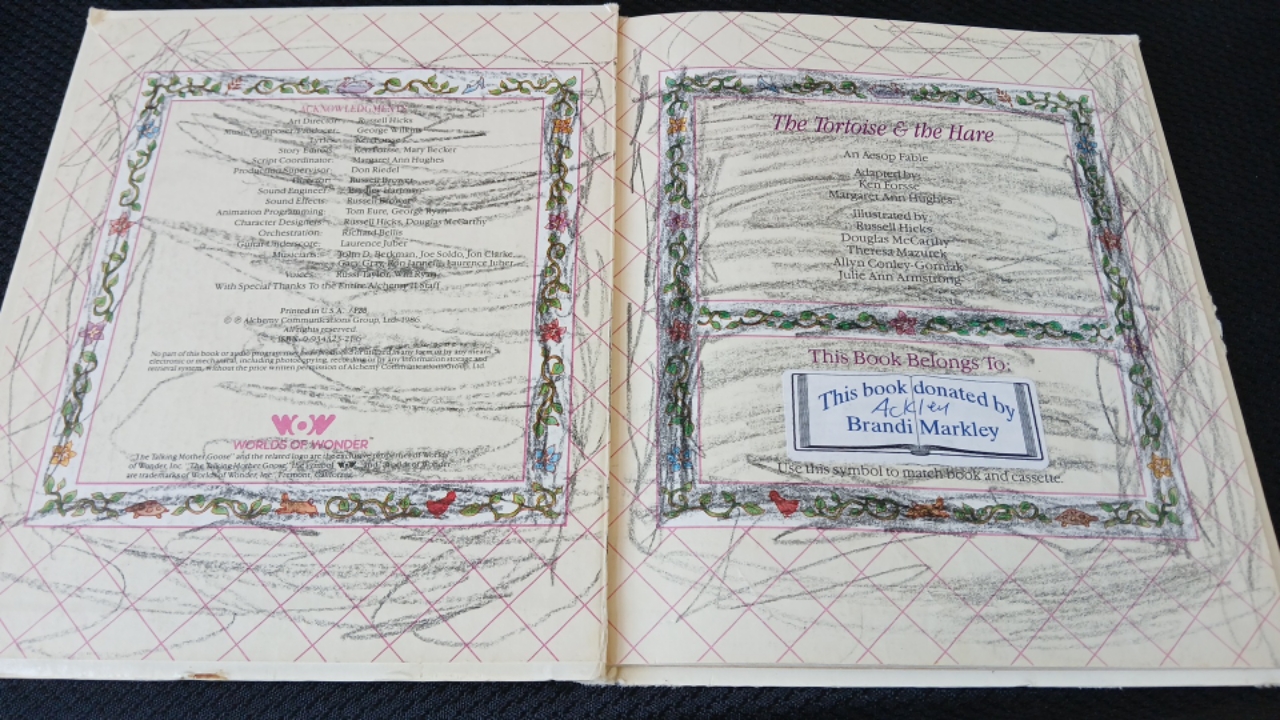 ACKNOWLEDGMENTS
Art Director: Russell Hicks
Music Composer/Producer: George Wilkins
Lyrics: Ken Forsse
Story Editor: Ken Forsse, Mary Becker
Script Coordinator: Margaret Ann Hughes
Production Supervisor: Don Riedel
Director: Russell Brower
Sound Engineer:
Sound Effects: Russell Brower
Animation Programming: Tom Eure, George Ryan
Character Designers: Russell Hicks, Douglas McCarthy
Orchestration: Richard Bellis
Guitar Underscore: Laurence Juber
Musicians: John D. Berkman, Joe Soldo, Jon Clarke,
Gary Gray, Ron Jannelli, Laurence Juber
Voices: Russi Taylor, Will Ryan
With Special Thanks To the Entire Alchemy II Staff
Printed in U.S.A.
© ℗ Alchemy Communications Group, Ltd. 1986
All rights reserved.
ISBN
No part of this book or audio program may be reproduced or utilized in any form or by any means,
electronic or mechanical, including photocopying, recording or by any information storage and
retrieval system, without the prior written permission of Alchemy Communications Group, Ltd.
WOW
WORLDS OF WONDER™
"The Talking Mother Goose" and the related logo are the exclusive properties of Worlds
of Wonder, Inc. "The Talking Mother Goose," the symbol WOW and "Worlds of Wonder"
are trademarks of Worlds of Wonder, Inc. Fremont, California.
The Tortoise & the Hare
An Aesop Fable
Adapted by:
Ken Forsse
Margaret Ann Hughes
Illustrated by:
Russell Hicks
Douglas McCarthy
Theresa Mazurek
Allyn Conley-Gorniak
Julie Ann Armstrong
This Book Belongs To:
This book donated by
Ackley
Brandi Markley
Use this symbol to match book and cassette.